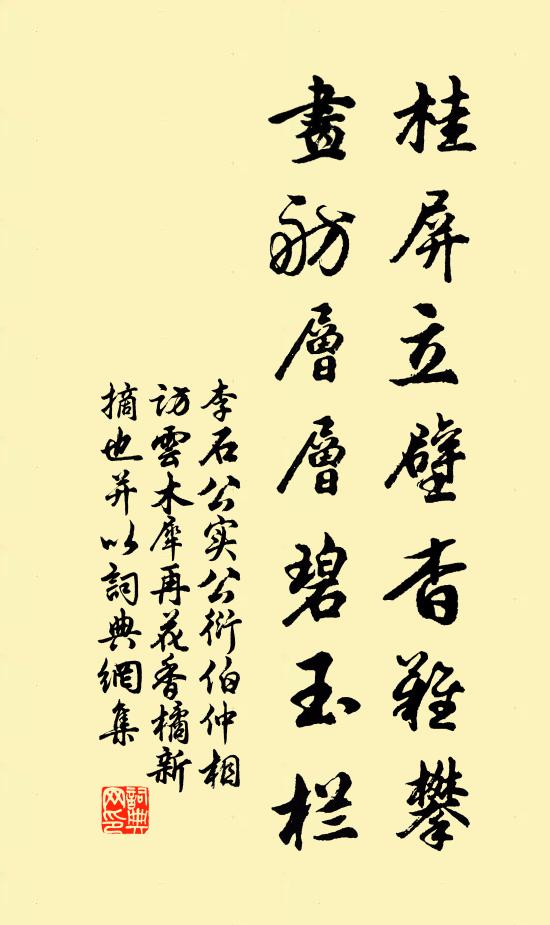 桂屏立壁杳難攀
畫舫層層碧玉栏
李石公实公衍伯仲相
访雲木犀再花香橘新
摘也并以詞典網集
詞典网印